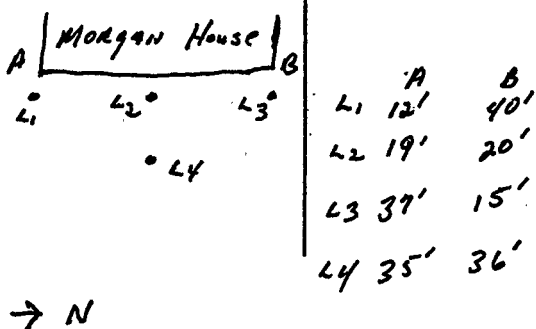 Morgan House
A B
L1 L2 L3
L4
A B
L1 12' 40'
L2 19' 20'
L3 37' 15'
L4 35' 36'
→ N